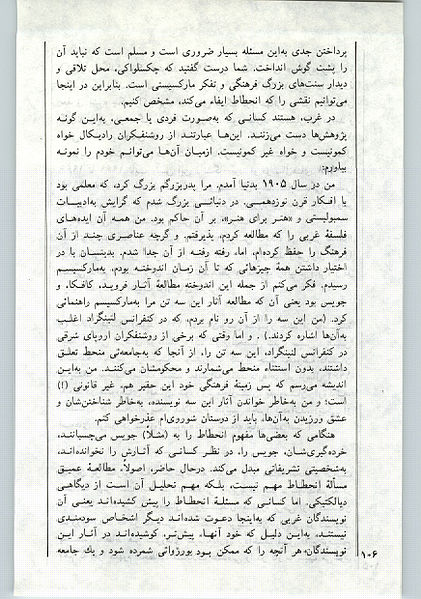 پرداختن جدی به‌این مسئله بسیار ضروری است و مسلم است که نباید آن
را پشت گوش انداخت. شما درست گفتید که چکسلواکی، محل تلاقی و
دیدار سنت‌های بزرگ فرهنگی و تفکر مارکسیستی است. بنابراین در اینجا
می‌توانیم نقشی را که انحطاط ایفاء می‌کند، مشخص کنیم.
در غرب، هستند کسانی که به‌صورت فردی یا جمعی، به‌این گونه
پژوهش‌ها دست می‌زنند. این‌ها عبارتند از روشنفکران رادیکال خواه
کمونیست و خواه غیر کمونیست. ازمیان آن‌ها می‌توانم خودم را نمونه
بیاورم:
من در سال ۱۹۰۵ بدنیا آمدم. مرا پدربزرگم بزرگ کرد، که معلمی بود
با افکار قرن نوزدهمی. در دنیائی بزرگ شدم که گرایش به‌ادبیات
سمبولیستی و «هنر برای هنر»، بر آن حاکم بود. من همه آن ایده‌های
فلسفهٔ غربی را که مطالعه کردم، پذیرفتم. و گرچه عناصری چند از آن
فرهنگ را حفظ کرده‌ام، اما، رفته رفته از آن جدا شدم. بدینسان با در
اختیار داشتن همهٔ چیزهائی که تا آن زمان اندوخته بودم، به‌مارکسیسم
رسیدم. فکر می‌کنم از جمله این اندوخته مطالعهٔ آثار فروید، کافکا، و
جویس بود یعنی آن که مطالعه آثار این سه تن مرا به‌مارکسیسم راهنمائی
کرد. (من این سه را از آن رو نام بردم، که در کنفرانس لنینگراد اغلب
به‌آن‌ها اشاره کردند.) . و اما وقتی که برخی از روشنفکران اروپای شرقی
در کنفرانس لنینگراد، این سه تن را، از آنجا که به‌جامعه‌ئی منحط تعلق
داشتند، بدون استثناء منحط می‌شمارند و محکومشان می‌کنند. من به‌این
اندیشه می‌رسم که پس زمینهٔ فرهنگی خود این حقیر هم، غیر قانونی (!)
است؛ و من به‌خاطر خواندن آثار این سه نویسنده، به‌خاطر شناختن‌شان و
عشق ورزیدن به‌آن‌ها، باید از دوستان شوروی‌ام عذرخواهی کنم.
هنگامی که بعضی‌ها مفهوم انحطاط را به (مثلاً) جویس می‌چسبانند،
خرده‌گیری‌شان، جویس را، در نظر کسانی که آثارش را نخوانده‌اند،
به‌شخصیتی تشریفاتی مبدل می‌کند. درحال حاضر، اصولاً، مطالعهٔ عمیق
مسألهٔ انحطاط مهم نیست، بلکه مهم تحلیل آن است از دیدگاهی
دیالکتیکی. اما کسانی که مسئلهٔ انحطاط را پیش کشیده‌اند یعنی آن
نویسندگان غربی که به‌اینجا دعوت شده‌اند دیگر اشخاص سودمندی
نیستند، به‌این دلیل که خود آنها، پیش‌تر، کوشیده‌اند در آثار این
نویسندگان، هر آنچه را که ممکن بود بورژوائی شمرده شود و یك جامعه
۱۰۶